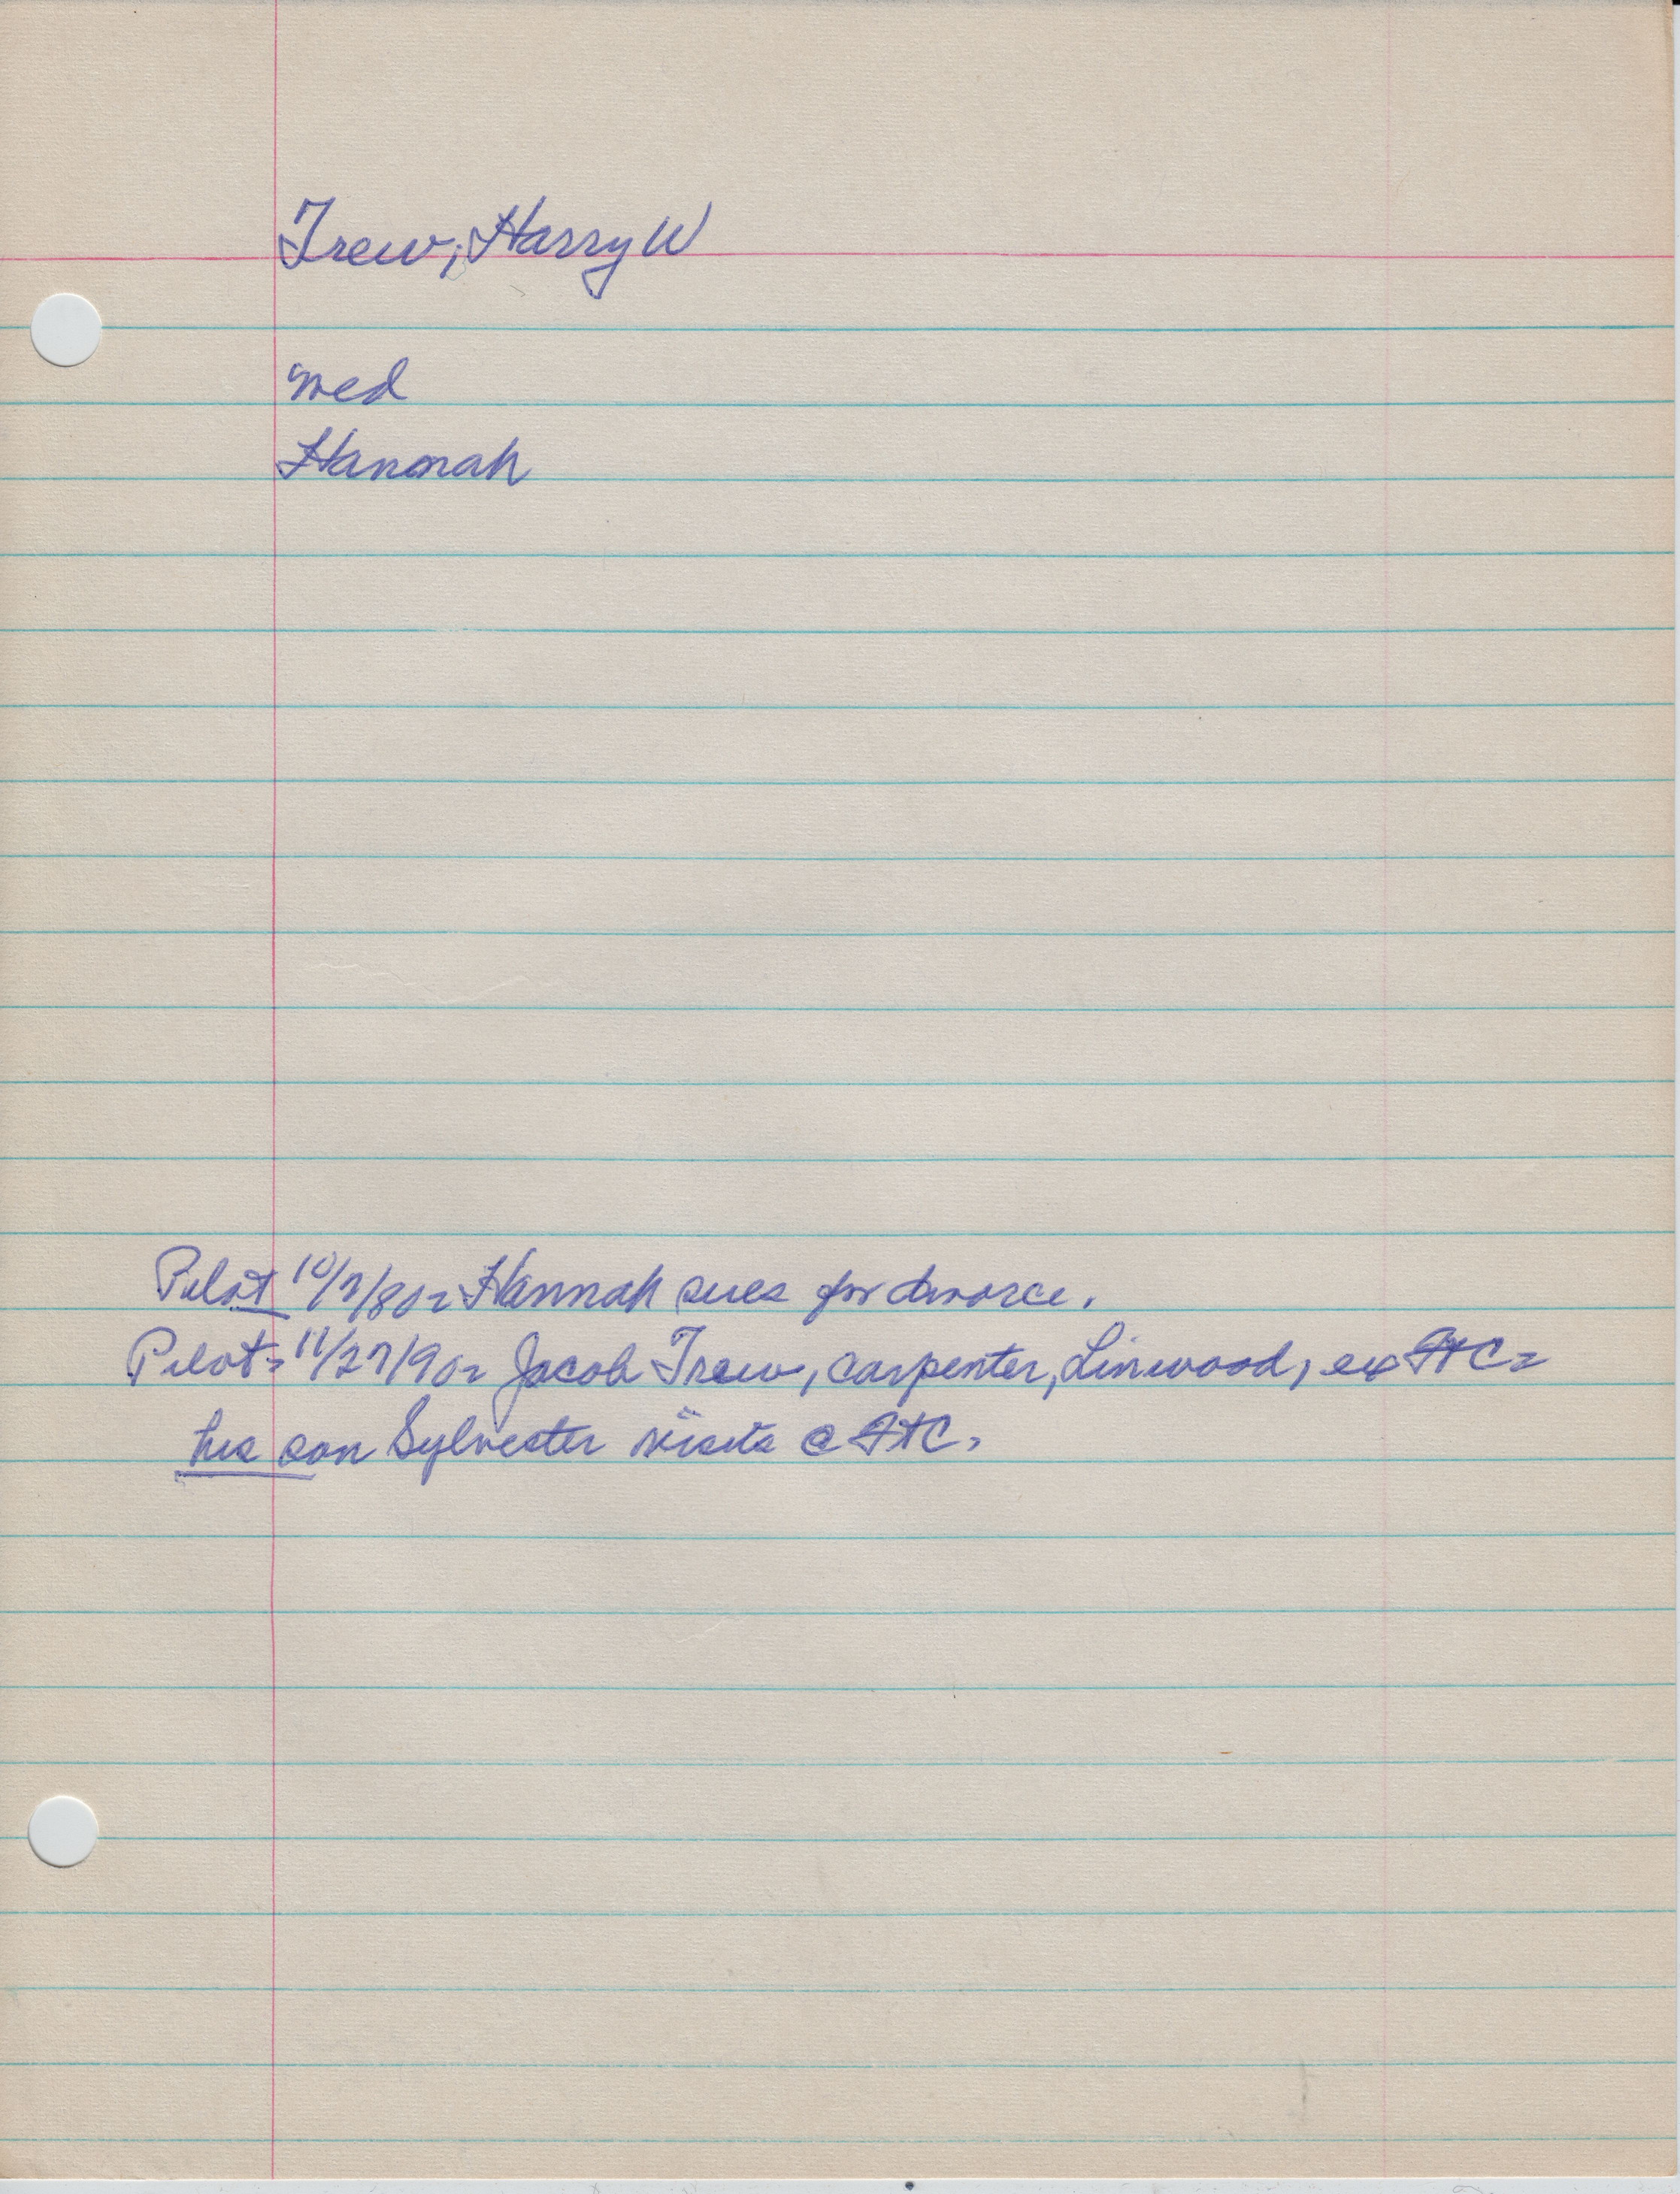 Trew, Harry W
med
Hannah
Pilot 10/7/80= Hannah sues for divorce.
Pilot= 11/27/90= Jacob Trew, carpenter, Linwood, ex FTC=
his son Sylvester visits @ FTC.